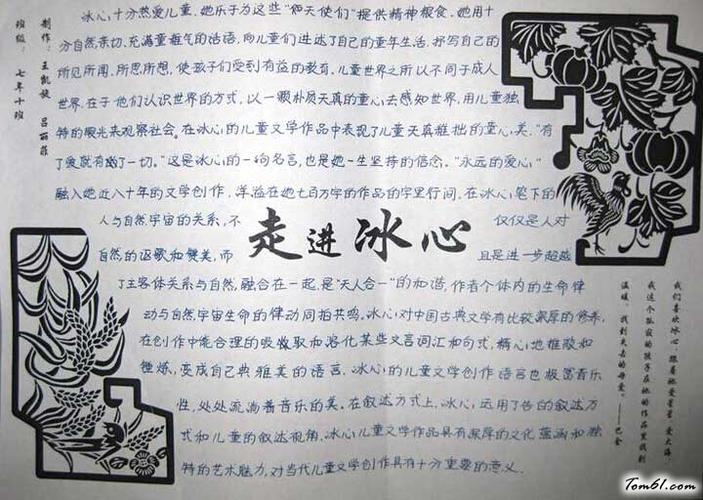 制作：王凯旋 吕丽菲
班级：七年十班
冰心，十分热爱儿童，她乐于为这些“但天使们”提供精神粮食。她用十
分自然亲切、充满童稚气的话语，向儿们进述了自己的童年生活，抒写自己的
所见所闻、所思所想，使孩子们受到有益的教育。儿童世界之所以不同于成人
世界，在于他们认识世界的方式，以一颗朴质天真的童心去感知世界，用儿童独
特的眼光来观察社会。在冰心的儿童文学作品中表现了儿童天真稚拙的童心美。“有
了爱就有了一切。”这是冰心的一句名言，也是她一生坚持的信念。“永远的爱心”
融入她近八十年的文学创作，洋溢在她七百万字的作品的字里行间。在冰心笔下的
人与自然宇宙的关系，不仅仅是人对
自然的讴歌和赞美，而且是进一步超越
走进冰心
了主客体关系与自然，融合在一起，是“天人合一”的和谐，作者个体内的生命律
动与自然宇宙生命的律动同拍共鸣。冰心对中国古典文学有比较深厚的修养，
在创作中能合理的吸收和溶化某些文言词汇和句式，精心地推敲和
锤炼，变成自己典雅美的语言。冰心的儿童文学创作语言也极富音乐
性，处处流淌着音乐的美。在叙达方式上，冰心运用了的叙达方
式和儿童的叙达视角，冰心儿童文学作品具有深厚的文化蕴涵和独
特的艺术魅力，对当代儿童文学创作具有十分重要的意义。
我们喜欢冰心，跟着她爱星星，爱大海，
我这个孤寂的孩子在她的作品里找到
温暖，找到失去的母爱。——巴金
Tom61.com